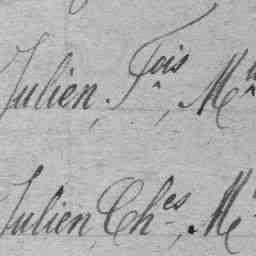 Julien, Fois, M
Julien, Ches, M